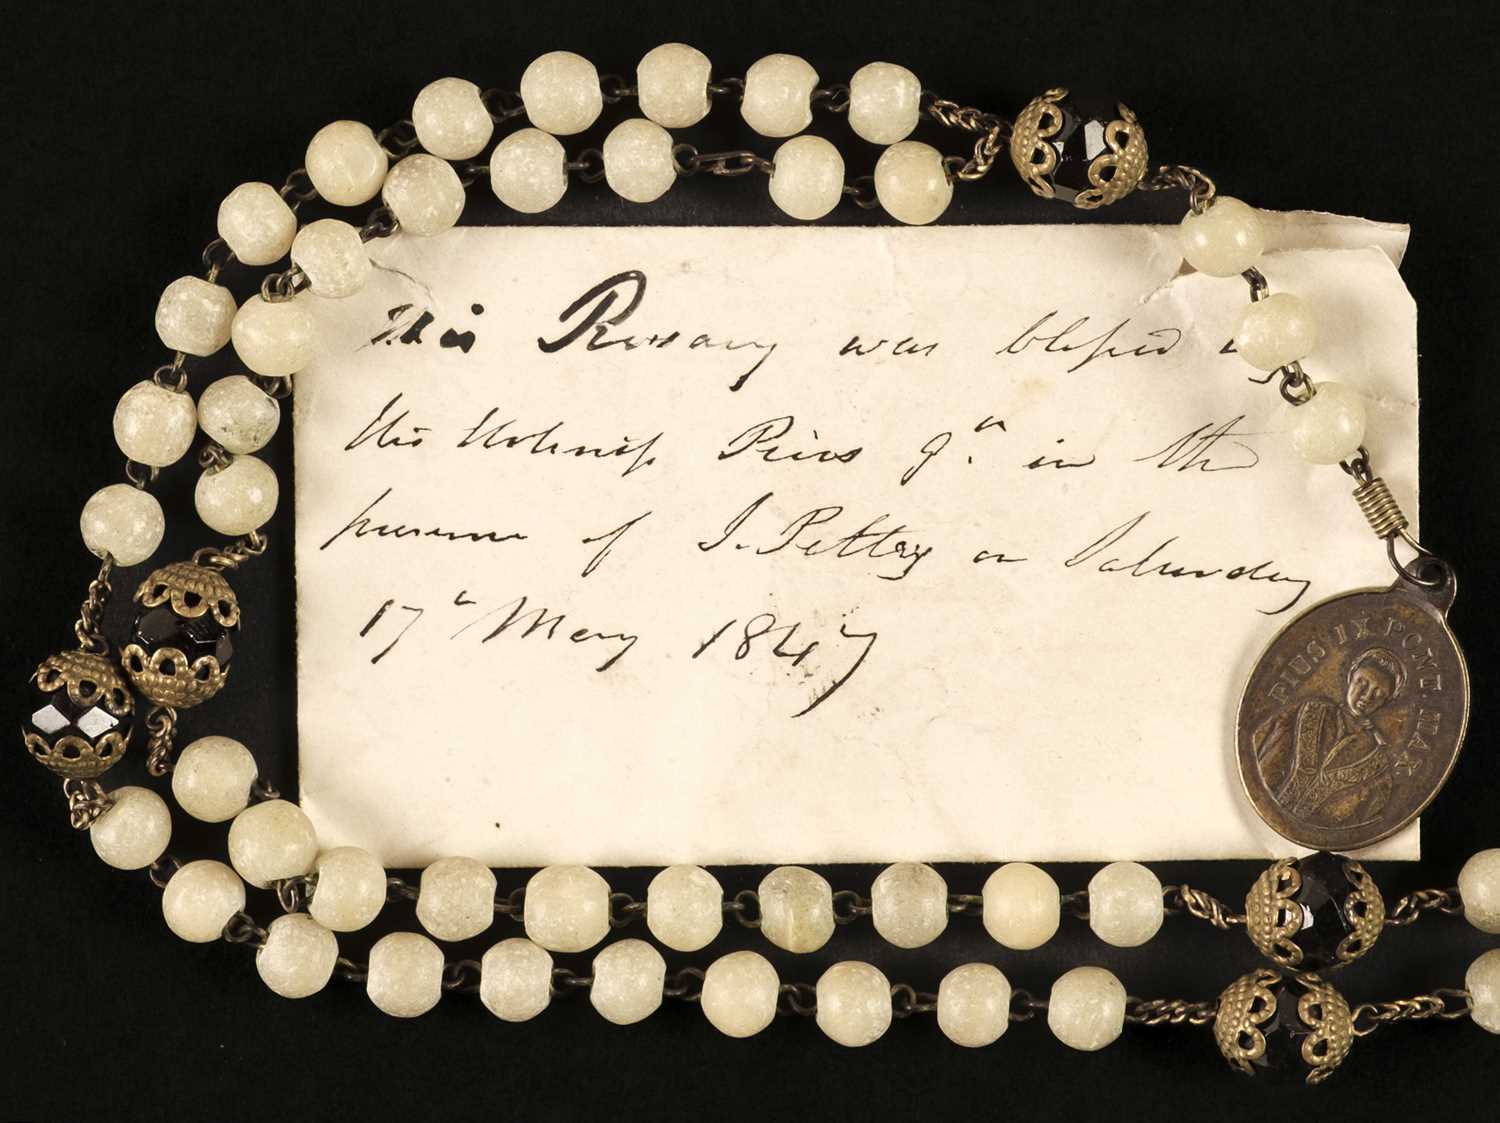 This Rosary was blessed by
His Holiness Pius 9th in the
presence of J. Pettey on Saturday
17th May 1847
PIUS IX PONT. MAX.